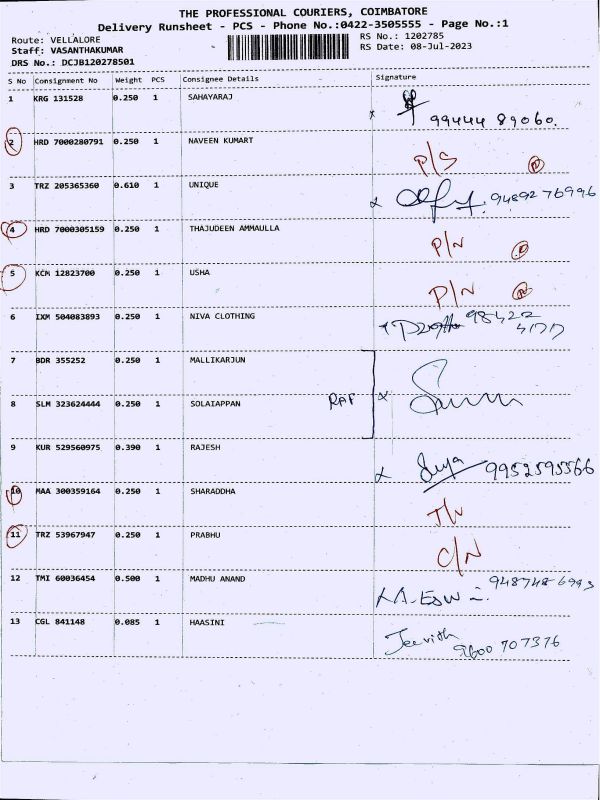 THE PROFESSIONAL COURIERS, COIMBATORE
Delivery Runsheet - PCS - Phone No.:0422-3505555 - Page No.:1
Route: VELLALORE
Staff: VASANTHAKUMAR
DRS No.: DCJB120278501
RS No.: 1202785
RS Date: 08-Jul-2023
S No Consignment No Weight PCS Consignee Details Signature
1 KRG 131528 0.250 1 SAHAYARAJ x 99444 89060.
2 HRD 7000280791 0.250 1 NAVEEN KUMART P/S
3 TRZ 205365360 0.610 1 UNIQUE 9489276996
4 HRD 7000305159 0.250 1 THAJUDEEN AMMAULLA P/N
5 KCM 12823700 0.250 1 USHA P/N
6 IXM 504083893 0.250 1 NIVA CLOTHING 98422
7 BDR 355252 0.250 1 MALLIKARJUN
8 SLM 323624444 0.250 1 SOLAIAPPAN
9 KUR 529560975 0.390 1 RAJESH 9952595566
10 MAA 300359164 0.250 1 SHARADDHA
11 TRZ 53967947 0.250 1 PRABHU C/N
12 TMI 60036454 0.500 1 MADHU ANAND 9487486993
13 CGL 841148 0.085 1 HAASINI Jeevith
9600 707376